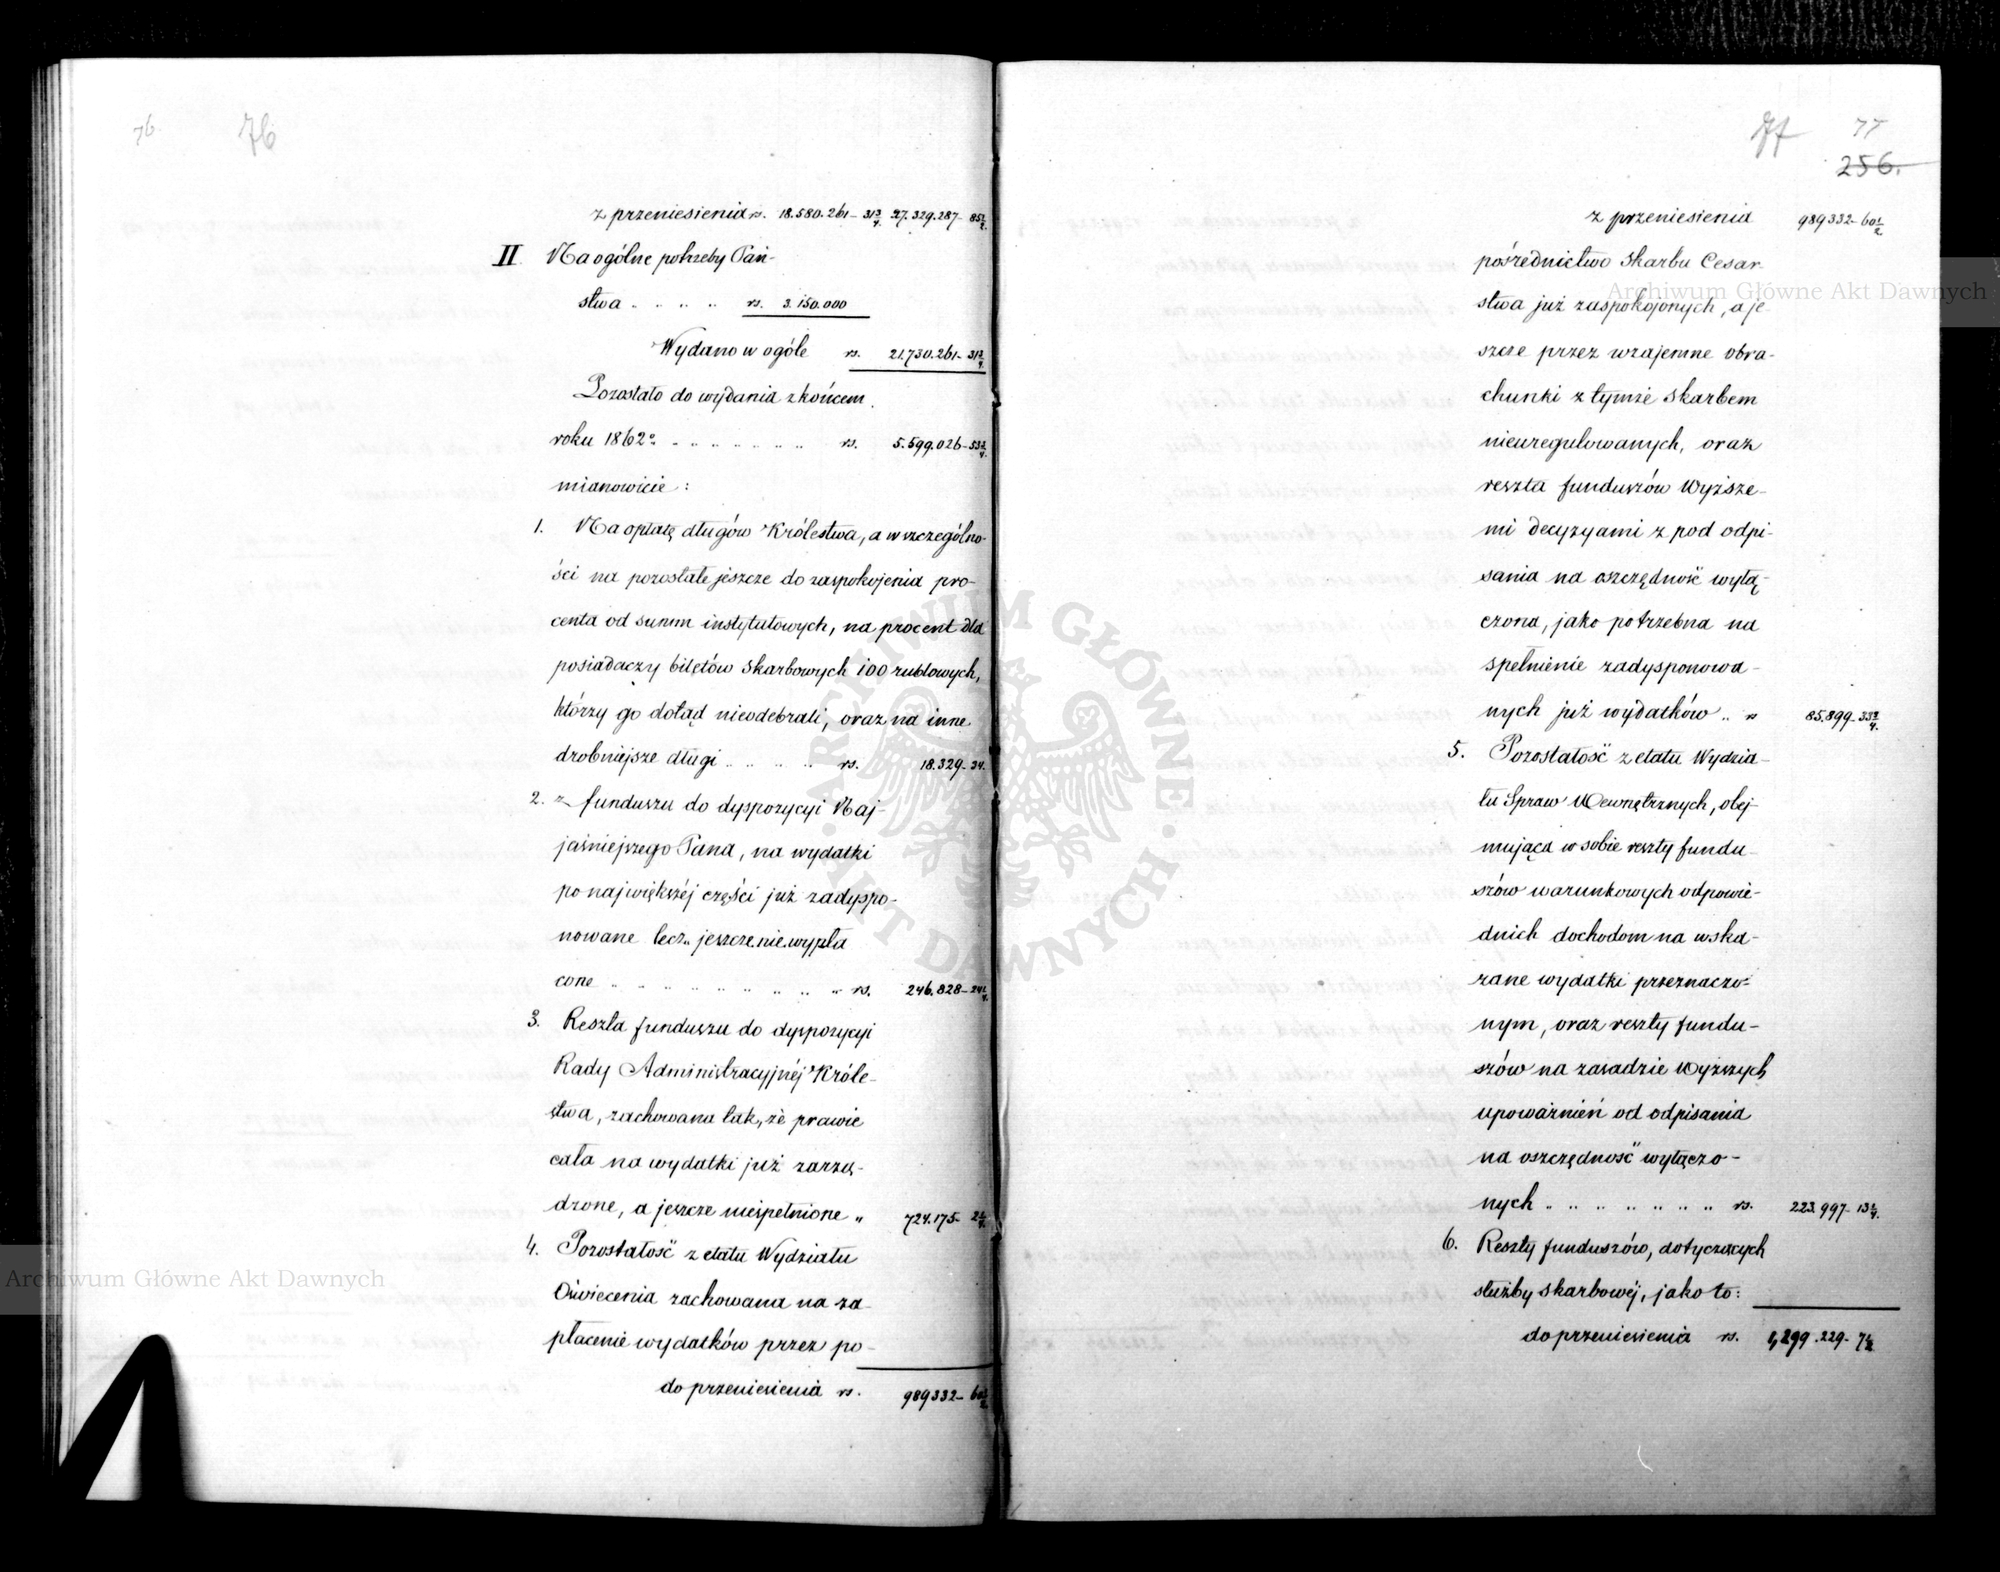 76
76
z przeniesienia rs. 18.580.261-31¾ 27.329.287-85½
II Na ogólne potrzeby Pań-
stwa .. .. .. .. rs. 3.150.000
Wydano w ogóle rs. 21.730.261-31¾
Pozostało do wydania z końcem
roku 1862º .. .. .. .. .. .. rs. 5.599.026-53¾
mianowicie:
1. Na opłatę długów Królestwa, a w szczególno-
ści na pozostałe jeszcze do zaspokojenia pro-
centa od summ instytutowych, na procent dla
posiadaczy biletów skarbowych 100 rublowych,
którzy go dotąd nieodebrali, oraz na inne
drobniejsze długi .. .. .. .. rs. 18.329-34.
2. z funduszu do dyspozycyi Naj-
jaśniejszego Pana, na wydatki
po największéj części już zadyspo-
nowane lecz jeszcze niewypła
cone .. .. .. .. .. .. .. .. .. rs. 246.828-24¼
3. Reszta funduszu do dyspozycyi
Rady Administracyjnéj Króle-
stwa, zachowana tak, że prawie
cała na wydatki już zarzą-
dzone, a jeszcze niespełnione „ 724.175- 2¼
4. Pozostałość z etatu Wydziału
Oświecenia zachowana na za-
płacenie wydatków przez po-
do przeniesienia rs. 989332-60½
77
77
256.
z przeniesienia 989332-60½
pośrednictwo Skarbu Cesar-
stwa już zaspokojonych, a je-
szcze przez wzajemne obra-
chunki z tymże Skarbem
nieuregulowanych, oraz
reszta funduszów Wyższe-
mi decyzyami z pod odpi-
sania na oszczędność wyłą-
czona, jako potrzebna na
spełnienie zadysponowa-
nych już wydatków .. rs 85.899-33¾
5. Pozostałość z etatu Wydzia-
łu Spraw Wewnętrznych, obej-
mująca w sobie reszty fundu-
szów warunkowych odpowie-
dnich dochodom na wska-
zane wydatki przeznaczo-
nym, oraz reszty fundu-
szów na zasadzie Wyższych
upoważnień od odpisania
na oszczędność wyłączo-
nych .. .. .. .. .. .. .. rs. 223.997-13¼
6. Reszty funduszów, dotyczących
służby skarbowéj, jako to:
do przeniesienia rs. 1,299.229- 7½
Archiwum Główne Akt Dawnych
ARCHIWUM GŁÓWNE AKT DAWNYCH
Archiwum Główne Akt Dawnych